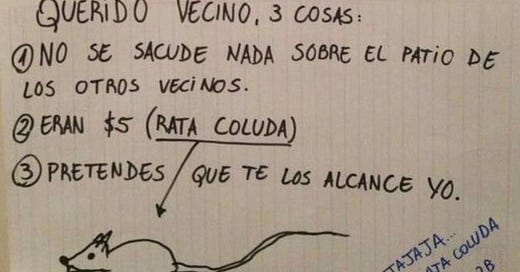 QUERIDO VECINO, 3 COSAS:
① NO SE SACUDE NADA SOBRE EL PATIO DE
LOS OTROS VECINOS.
② ERAN $5 (RATA COLUDA)
③ PRETENDES QUE TE LOS ALCANCE YO.
JAJAJA...
RATA COLUDA